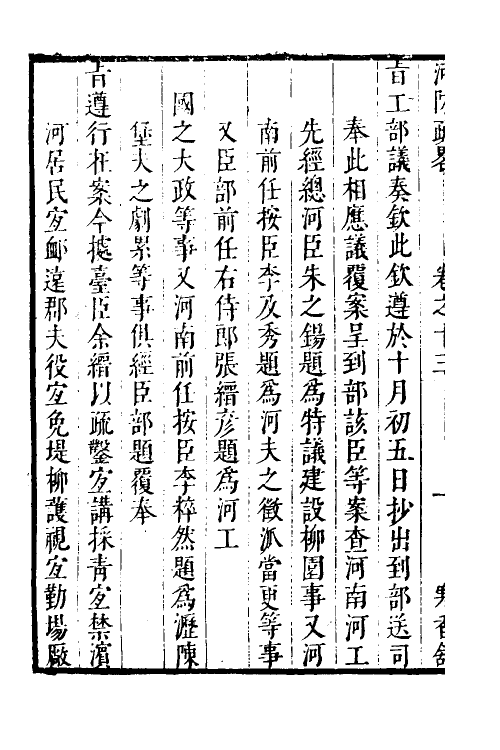 河防疏畧 卷之十三 一
旨工部議奏欽此欽遵於十月初五日抄出到部送司
奉此相應議覆案呈到部該臣等案查河南河工
先經總河臣朱之錫題爲特議建設柳園事又河
南前任按臣李及秀題爲河夫之徵派當更等事
又臣部前任右侍郎張縉彦題爲河工
國之大政等事又河南前任按臣李粹然題爲瀝陳
堡夫之劇累等事俱經臣部題覆奉
旨遵行在案今據臺臣余縉以疏鑿宜講採青宜禁濵
河居民宜䘏遠郡夫役宜免堤柳護視宜勤場厰